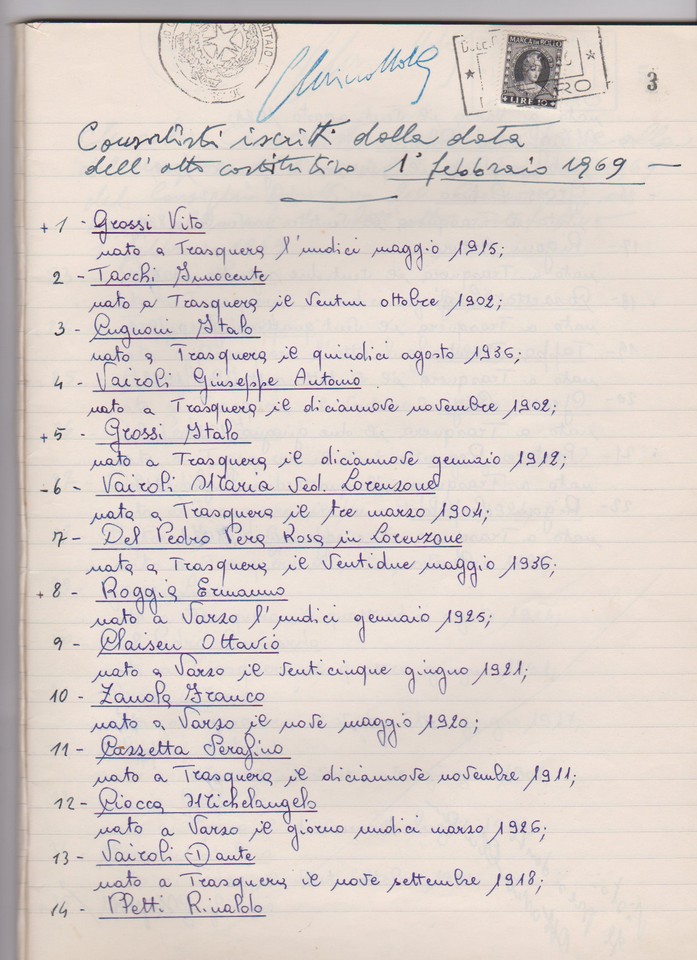 MARCA DA BOLLO
LIRE 10
3
Consortisti iscritti dalla data
dell'atto costitutivo 1° febbraio 1969 —
+ 1 - Grossi Vito
nato a Trasquera l'undici maggio 1915;
2 - Tacchi Innocente
nato a Trasquera il ventun ottobre 1902;
3 - Cugnoni Italo
nato a Trasquera il quindici agosto 1936;
4 - Vairoli Giuseppe Antonio
nato a Trasquera il diciannove novembre 1902;
+ 5 - Grossi Italo
nato a Trasquera il diciannove gennaio 1912;
- 6 - Vairoli Maria ved. Lorenzone
nata a Trasquera il tre marzo 1904;
7 - Del Pedro Pera Rosa in Lorenzone
nata a Trasquera il ventidue maggio 1936;
+ 8 - Roggia Ermanno
nato a Varzo l'undici gennaio 1925;
9 - Claisen Ottavio
nato a Varzo il venticinque giugno 1921;
10 - Zanola Franco
nato a Varzo il nove maggio 1920;
11 - Cazzetta Serafino
nato a Trasquera il diciannove novembre 1911;
12 - Ciocca Michelangelo
nato a Varzo il giorno undici marzo 1926;
13 - Vairoli Dante
nato a Trasquera il nove settembre 1918;
14 - Pletti Rinaldo